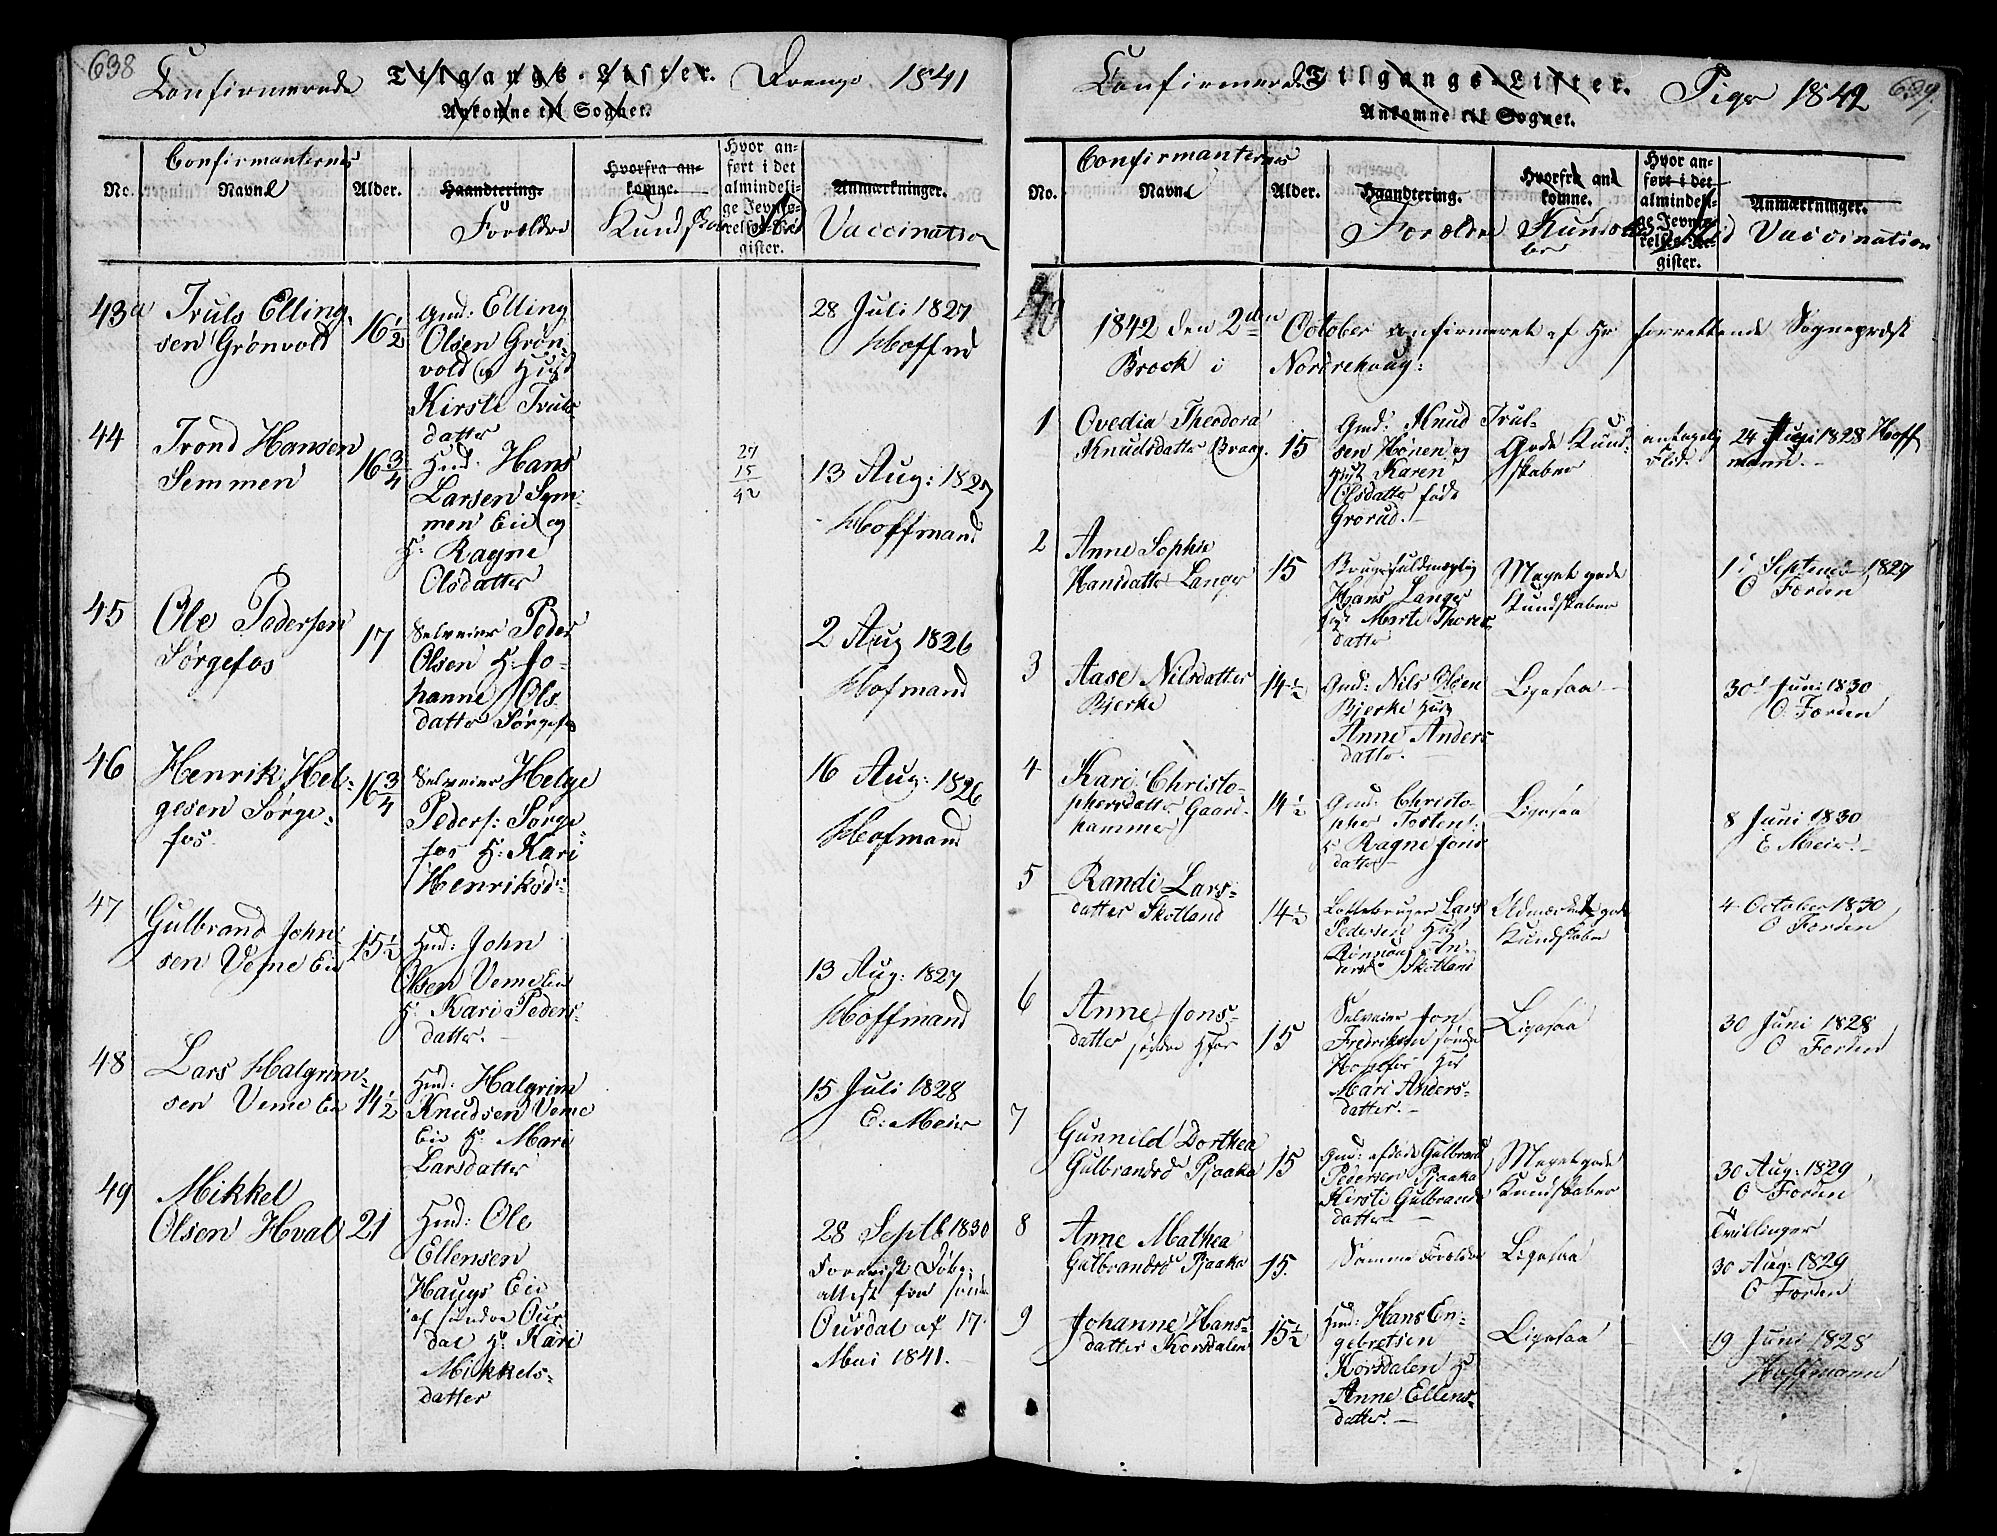 638
Confirmerede Tilgangs-Lister. Drenge 1841
Ankomne til Sognet.
No.
Confirmanternes
Navne
Alder.
Haandtering.
Forældre
Hvorfra an-
komne.
Kundskaber
Hvor an-
ført i det
almindeli-
ge Jevnfø-
relses-Re-
gister.
Anmærkninger.
Vaccination
43a
Truls Elling-
sen Grønvold
16 1/2
Gmd: Elling
Olsen Grøn-
vold og Hust
Kirsti Truls-
datter
28 Juli 1827
Hoffmd
44
Trond Hansen
Semmen
16 3/4
Hmd. Hans
Larsen Sem-
men Eie og
H: Ragne
Olsdatter
27
15
42
13 Aug: 1827
Hoffmand
45
Ole Pedersen
Sørgefos
17
Selveier Peder
Olsen H: Jo-
hanne Ols-
datter Sørgefos
2 Aug 1826
Hofmand
46
Henrik Hel-
gesen Sørge-
fos.
16 3/4
Selveier Helge
Peders: Sørge-
fos H: Kari
Henriksd:
16 Aug: 1826
Hofmand
47
Gulbrand John-
sen Veme Eie
15 1/2
Hmd: John
Olsen Veme Eie
H: Kari Peders-
datter.
13 Aug: 1827
Hoffmand
48
Lars Halgrim-
sen Veme Eie
14 1/2
Hmd: Halgrim
Knudsen Veme
Eie H: Mari
Larsdatter
15 Juli 1828
E: Meier
49
Mikkel
Olsen Hval
21
Hmd: Ole
Ellensen
Haugs Eie
af søndre Our-
dal H: Kari
Mikkels-
datter
28 Septb 1830
Forevist Døbe-
attest fra søndre
Ourdal af 17
Mai 1841.
639
Confirmerede Tilgangs-Lister. Piger 1842
Ankomne til Sognet.
No.
Confirmanternes
Navne
Alder.
Haandtering.
Forældre
Hvorfra an-
komne.
Kundska-
ber
Hvor an-
ført i det
almindeli-
ge Jevnfø-
relses-Re-
gister.
Flid
Anmærkninger.
Vaccination
1842 den 2den October confirmeret af Hr forrettende Sognepræst
Brock i Norderehaug:
1
Ovedia Theodora
Knudsdatter Braag.
15
Gmd: Knud Trul-
sen Hønen og
Hust Karen
Olsdatter født
Grorud.
Gode Kund-
skaber
antagelig
Flid.
24 Juni 1828 Hoff
mann.
2
Anne Sophie
Hansdatter Lange
15
Brugsfuldmægtig
Hans Lange
Hust Marte Thores
datter
Meget gode
Kundskaber
1 September 1827
O Forden
3
Aase Nilsdatter
Bjerke
14 1/2
Gmd: Nils Olsen
Bjerke Hust
Anne Anders
datter.
Ligesaa
30 Juni 1830
O. Forden
4
Kari Christo-
phersdatter Gaard-
hammer
14 1/2
Gmd: Christo-
pher Tosten:
H Ragne Jons
datter
Ligesaa
8 Juni 1830
E Meier.
5
Randi Lars-
datter Skotland
14 1/2
Lottebruger Lars
Pedersen Hust
Rønnaug An-
dersd: Skotland
Udmærket gode
Kundskaber
4 October 1830
O Forden
6
Anne Jons-
datter søndre Hfor
15
Selveier Jon
Fredriksen søndre
Honsfor Hus
Mari Anders-
datter.
Ligesaa
30 Juni 1828
O Forden
7
Gunnild Dorthea
Gulbrandsd Pjaaka
15
Gmd: afdøde Gulbrand
Pedersen Pjaaka
Kirsti Gulbrands
datter
Meget gode
Kundskaber
30 Aug: 1829
O Forden
Tvillinger
8
Anne Mathea
Gulbrandsd Pjaaka
15.
Samme Forældre
Ligesaa
30 Aug: 1829
O Forden
9
Johanne Hans-
datter Korsdalen
15 1/2
Hmd: Hans En-
gebretsen
Korsdalen H
Anne Ellens-
datter.
Ligesaa
19 Juni 1828
Hoffmann